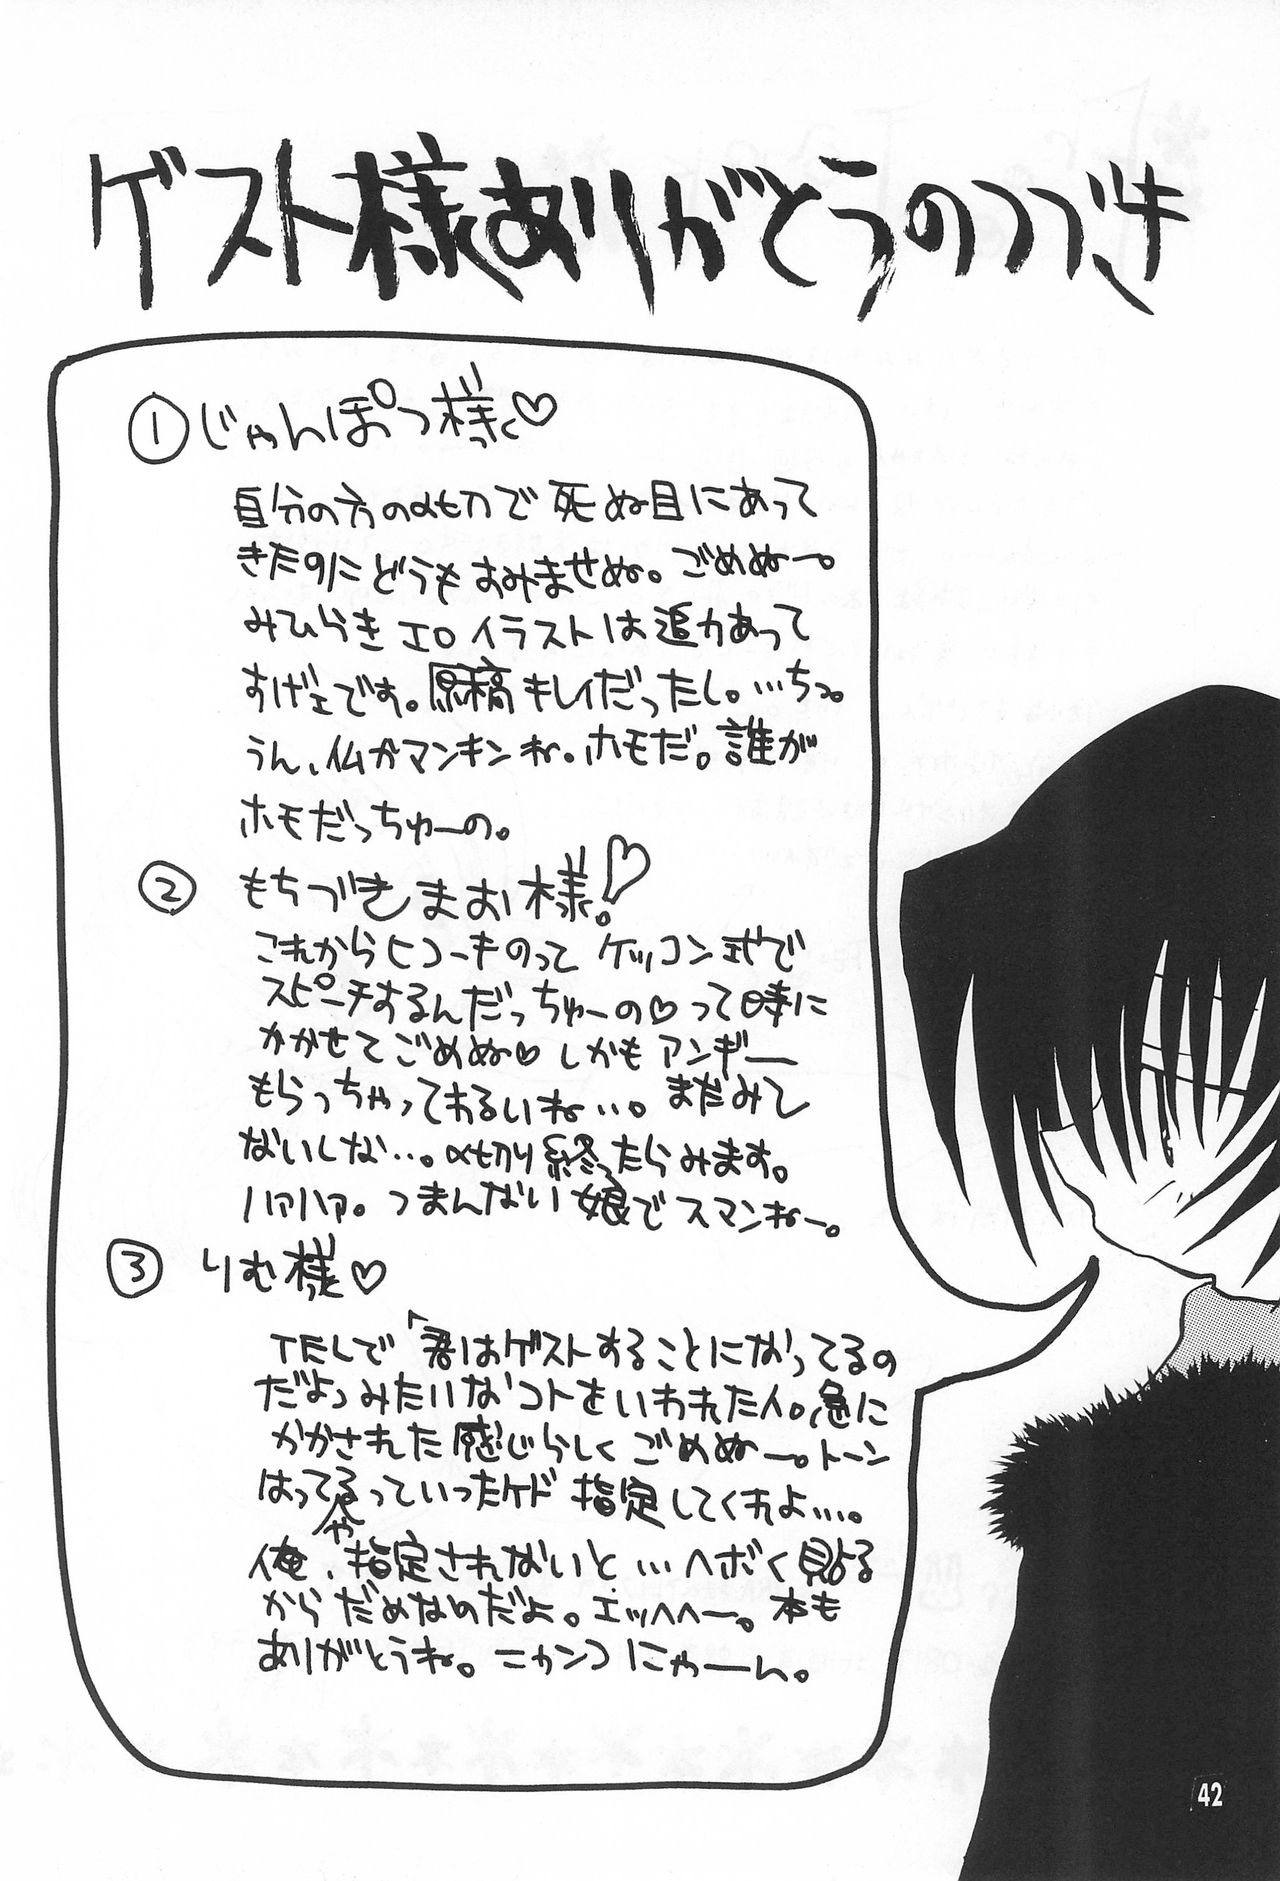 ゲスト様ありがとうのつづき
①じゃんぽつ様っ♡
自分の方の〆切で死ぬ目にあって
きたのにどうもすみませぬ。ごめぬー。
みひらきエロイラストは迫力あって
すげェです。原稿キレイだったし。…ちっ。
うん、仏がマンキンね。ホモだ。誰が
ホモだっちゅーの。
②もちづきまお様!♡
これからヒコーキのってケッコン式で
スピーチするんだっちゅーの♡って時に
かかせてごめぬ♡しかもアンギー
もらっちゃっておるいね…。まだみし
ないしな…。〆切り終ったらみます。
ハァハァ。つまんない娘でスマンねー。
③りむ様♡
TELで「君はゲストすることになってるの
だよ」みたいなコトをいわれた人。急に
かかされた感じらしくごめぬー。トーン
はってるっていったケド指定してくれよ…。
俺、指定されないと…ヘボく貼る
や
からだめなのだよ。エッヘヘー。本も
ありがとうね。ニャンコにゃーん。
42